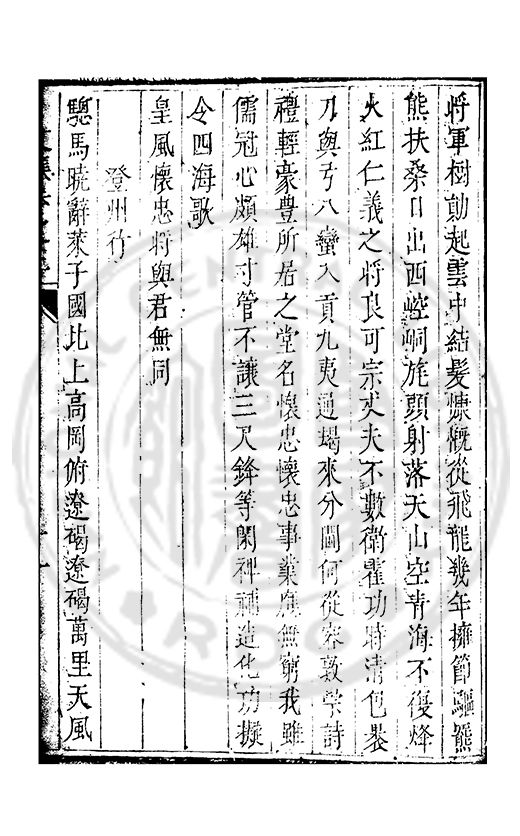 將軍樹勳起雲中結髮慷慨從飛龍幾年擁節驅熊
熊扶桑日出西崆峒旄頭射落天山空青海不復烽
火紅仁義之將良可宗丈夫不數衛霍功時清包裹
刀與弓八蠻入貢九夷通朅來分閫何從容敦崇詩
禮輕豪豐所居之堂名懷忠懷忠事業應無窮我雖
儒冠心頗雄寸管不讓三尺鋒等閑裨補造化功擬
令四海歌
皇風懷忠將與君無同
登州行
驄馬曉辭萊子國北上高岡俯遼碣遼碣萬里天風